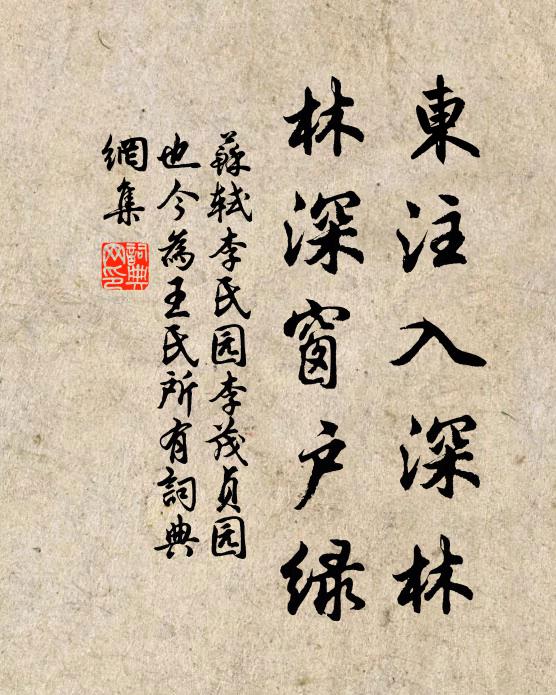 東注入深林
林深窗户绿
蘇軾李氏园李茂貞园
也今為王氏所有詞典
網集
詞典网印